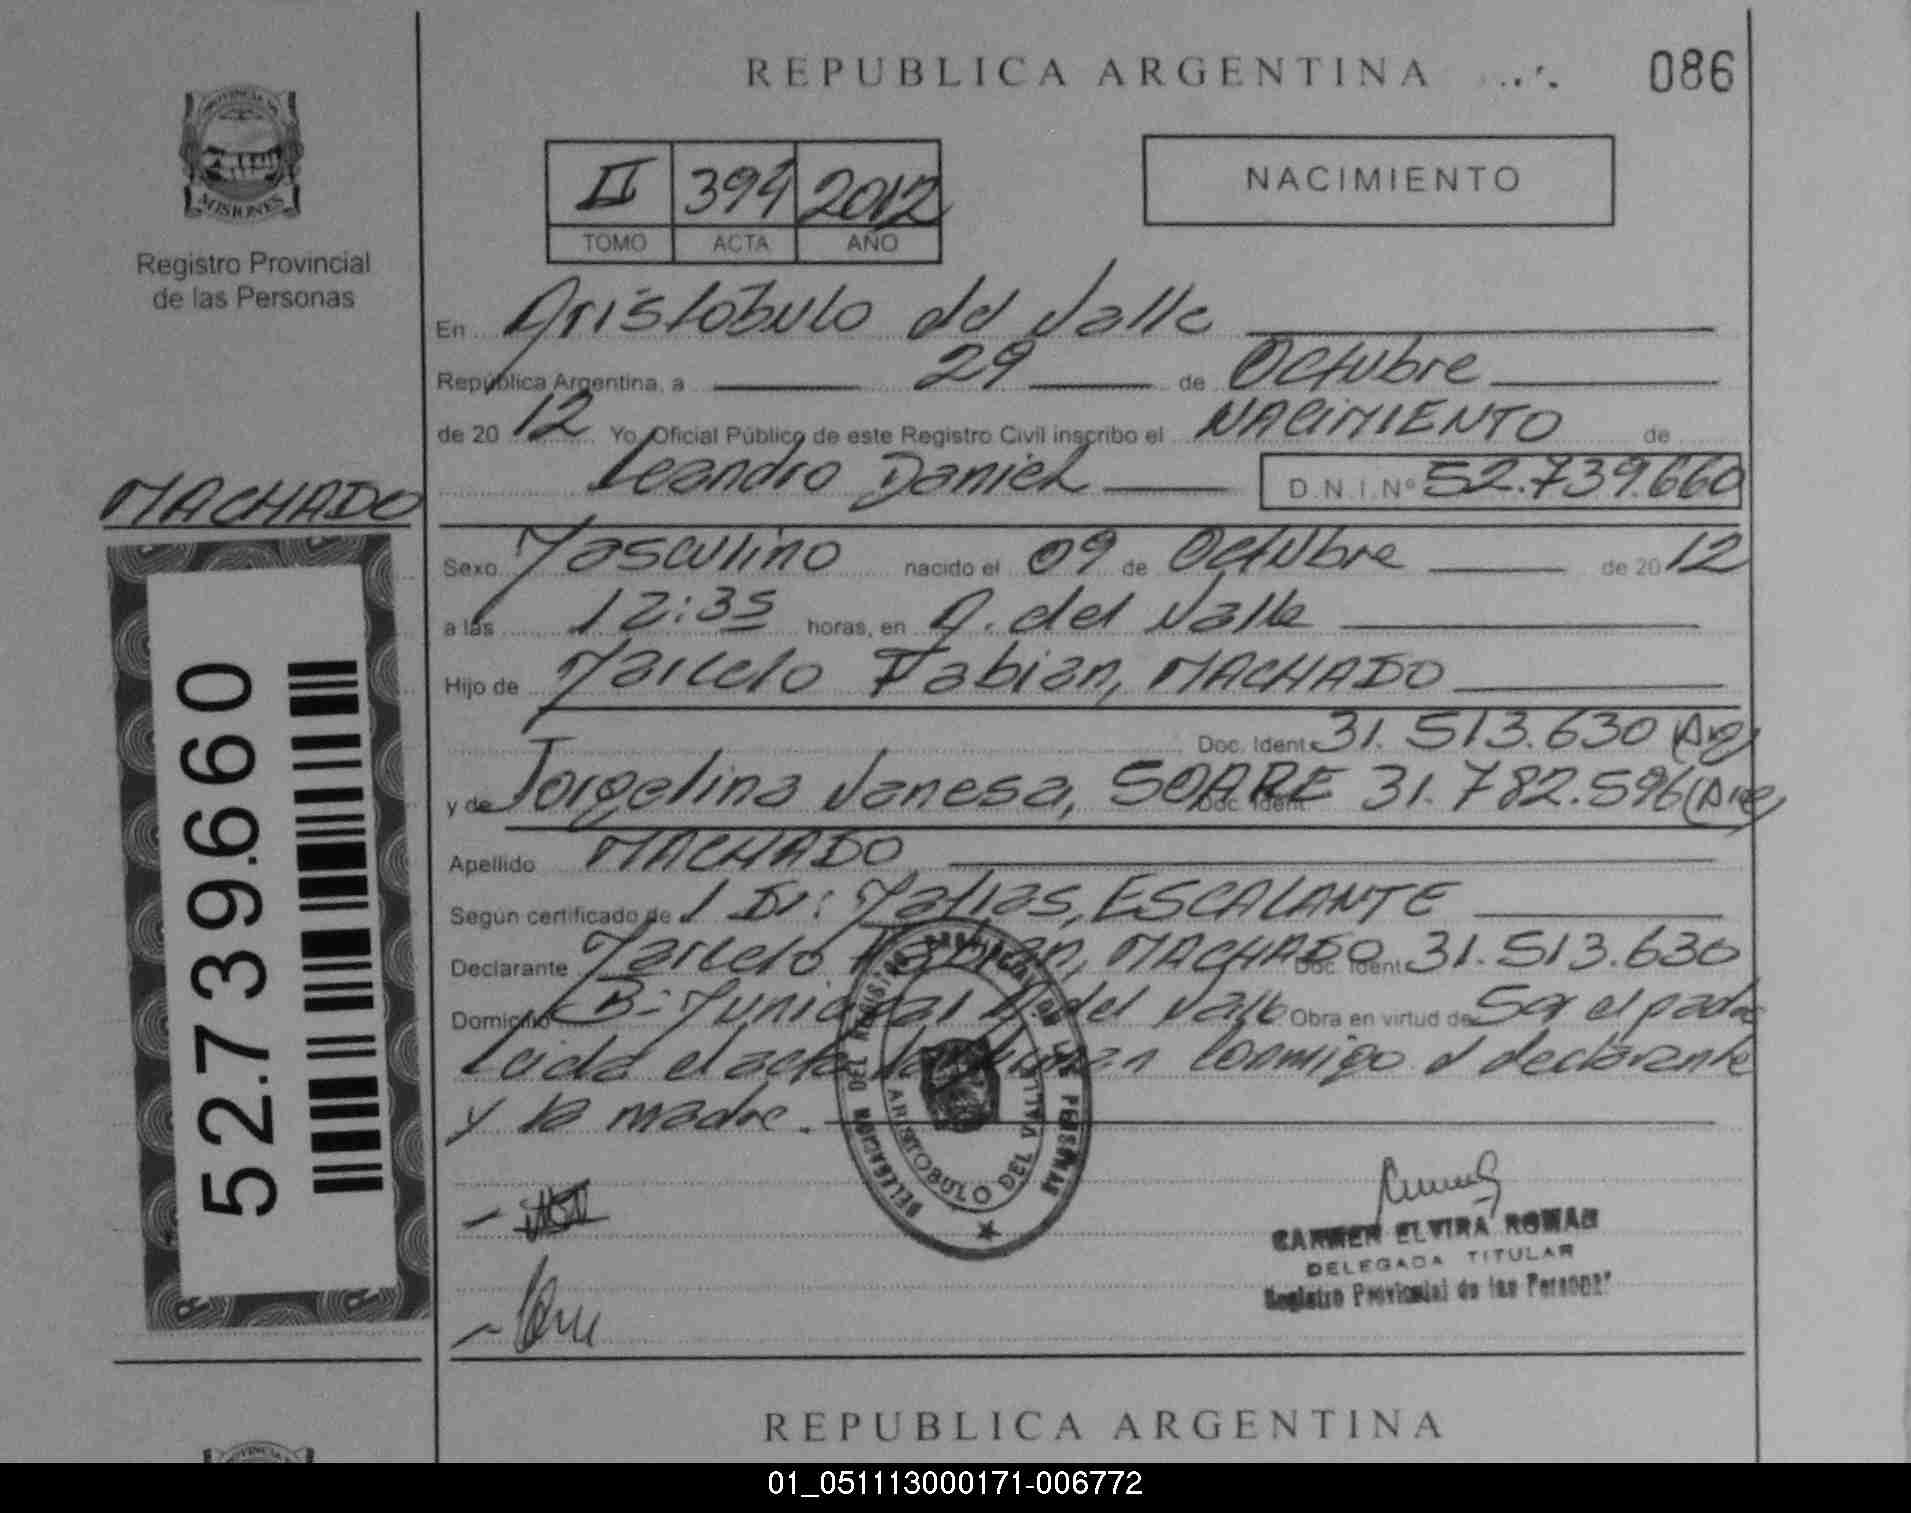 REPUBLICA ARGENTINA
086
PROVINCIA DE
MISIONES
Registro Provincial
de las Personas
II 394 2012
TOMO ACTA AÑO
NACIMIENTO
En Aristóbulo del Valle
República Argentina, a 29 de Octubre
de 20 12 Yo, Oficial Público de este Registro Civil inscribo el NACIMIENTO de
Leandro Daniel D.N.I.Nº 52.739.660
MACHADO
Sexo Masculino nacido el 09 de Octubre de 20 12
a las 12:35 horas, en A. del Valle
Hijo de Marcelo Fabian, MACHADO
Doc. Ident. 31.513.630 (Arg)
y de Jorgelina Vanesa, SOARE Doc. Ident. 31.782.596 (Arg)
Apellido MACHADO
Según certificado de Dr: Matias, ESCALANTE
Declarante Marcelo Fabian, MACHADO Doc. Ident. 31.513.630
Domicilio B- Municipal A. del Valle Obra en virtud de Ser el padre
Leida el acta la firman conmigo el declarante
y la madre.
52.739.660
DELEGACION DEL REGISTRO PROVINCIAL DE LAS PERSONAS
ARISTOBULO DEL VALLE
CARMEN ELVIRA ROMAN
DELEGADA TITULAR
Registro Provincial de las Personas
REPUBLICA ARGENTINA
01_051113000171-006772